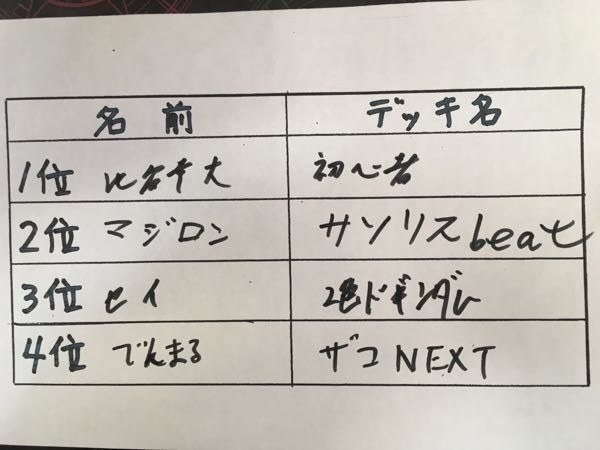 名前 デッキ名
1位 初心者
2位 マジロン サソリスbeat
3位 セイ 2色ドギンダム
4位 でんまる ザコNEXT